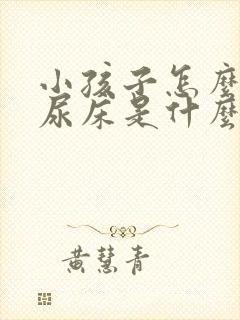 小孩子怎麼
尿床是什麼
黃慧青